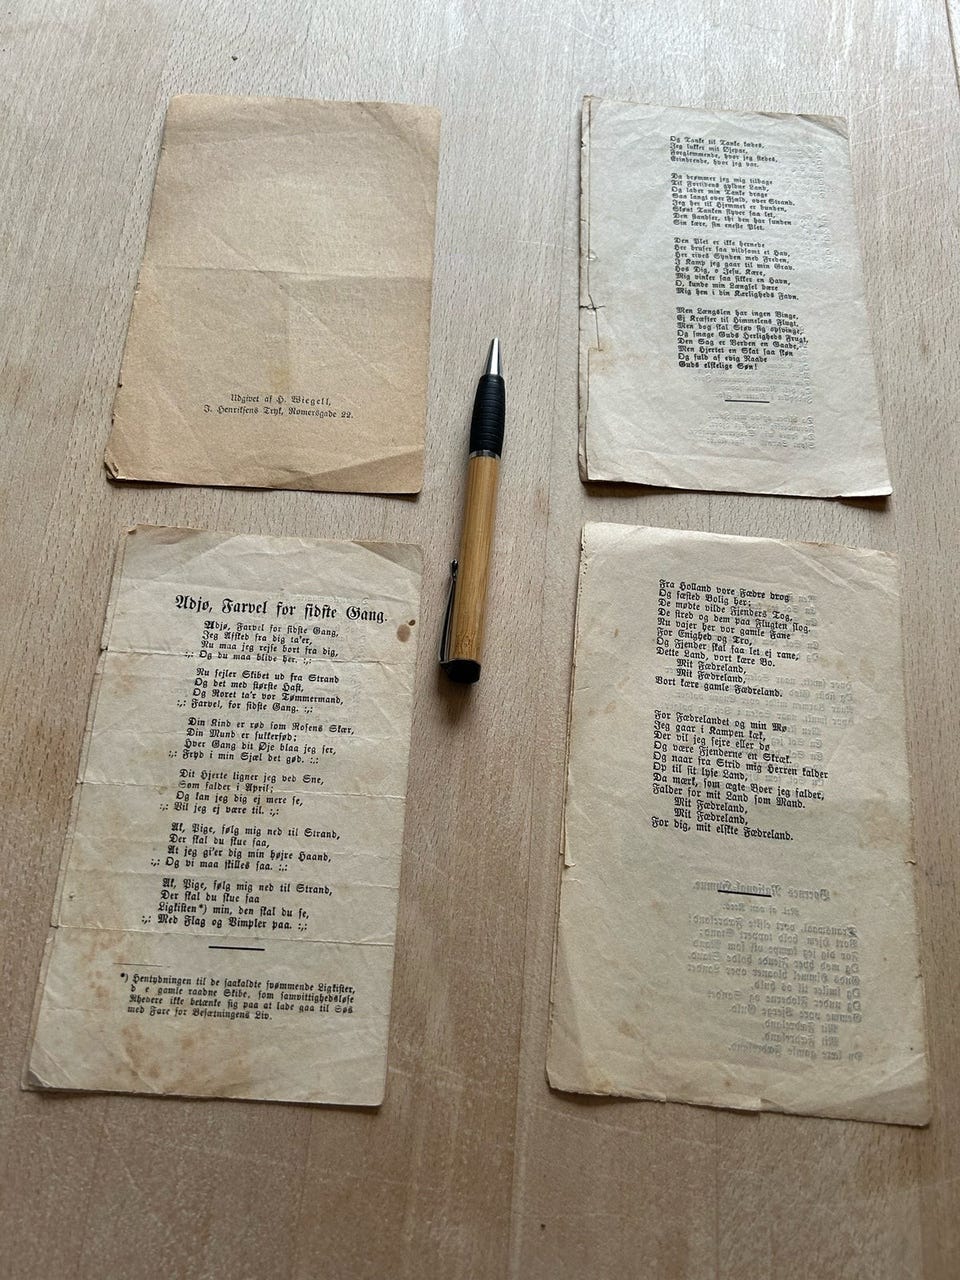 Udgivet af H. Wiegell,
J. Henriksens Tryk, Romersgade 22.
Og Tanke til Tanke kædes,
Jeg lukket mit Øjepar,
Forglemmende, hvor jeg stedes,
Erindrende, hvor jeg var.
Da drømmer jeg mig tilbage
Til Fortidens gyldne Land,
Og lader min Tanke drage
Saa langt over Fjeld, over Strand.
Jeg her til Hjemmet er bunden,
Skønt Tanken flyver saa let,
Den standser, thi den har funden
Sin kære, sin eneste Plet.
Den Plet er ikke hernede
Her bruser saa vildsomt et Hav,
Her rives Synden med Freden,
I Kamp jeg gaar til min Grav.
Hos Dig, o Jesu, Kære,
Mig vinker saa sikker en Havn,
O, kunde min Længsel bære
Mig hen i din Kærligheds Favn.
Men Længslen har ingen Vinge,
Ej Kræfter til Himmelens Flugt,
Men dog skal Støv sig opsvinge,
Og smage Guds Herligheds Frugt,
Den Sag er Verden en Gaade,
Men Hjertet en Skat saa skøn
Og fuld af evig Naade
Guds elskelige Søn!
Adjø, Farvel for sidste Gang.
Adjø, Farvel for sidste Gang,
Jeg Afsked fra dig ta'er,
Nu maa jeg rejse bort fra dig,
:,: Og du maa blive her. :,:
Nu sejler Skibet ud fra Strand
Og det med største Hast,
Og Roret ta'r vor Tømmermand,
:,: Farvel, for sidste Gang. :,:
Din Kind er rød som Rosens Skær,
Din Mund er sukkersød;
Hver Gang dit Øje blaa jeg ser,
:,: Fryd i min Sjæl det gød. :,:
Dit Hjerte ligner jeg ved Sne,
Som falder i April;
Og kan jeg dig ej mere se,
:,: Vil jeg ej være til. :,:
Ak, Pige, følg mig ned til Strand,
Der skal du skue saa,
At jeg gi'er dig min højre Haand,
:,: Og vi maa skilles saa. :,:
Ak, Pige, følg mig ned til Strand,
Der skal du skue saa
Ligkisten*) min, den skal du se,
:,: Med Flag og Vimpler paa. :,:
*) Hentydningen til de saakaldte svømmende Ligkister,
d e gamle raadne Skibe, som samvittighedsløse
Rhedere ikke betænke sig paa at lade gaa til Søs
med Fare for Besætningens Liv.
Fra Holland vore Fædre drog
Og fæsted Bolig her;
De mødte vilde Fjenders Tog,
De stred og dem paa Flugten slog.
Nu vajer her vor gamle Fane
For Enighed og Tro,
Og Fjender skal saa let ej rane,
Dette Land, vort kære Bo.
Mit Fædreland,
Mit Fædreland,
Vort kære gamle Fædreland.
For Fædrelandet og min Mø
Jeg gaar i Kampen kæk,
Der vil jeg sejre eller dø
Og være Fjenderne en Skræk.
Og naar fra Strid mig Herren kalder
Op til sit lyse Land,
Da mærk, som ægte Boer jeg falder,
Falder for mit Land som Mand.
Mit Fædreland,
Mit Fædreland,
For dig, mit elskte Fædreland.